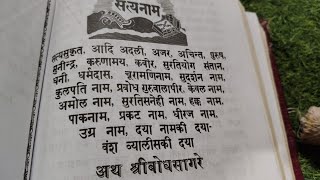 सत्यनाम
सत्यसुकृत, आदि अदली, अजर, अचिन्त, पुरुष,
मुनीन्द्र, करुणामय, कबीर, सुरतियोग संतान,
धनी, धर्मदास, चूरामणिनाम, सुदर्शन नाम,
कुलपति नाम, प्रबोध गुरुबालापीर, केवल नाम,
अमोल नाम, सुरतिसनेही नाम, हक्क नाम,
पाकनाम, प्रकट नाम, धीरज नाम,
उग्र नाम, दया नामकी दया-
वंश ब्यालीसकी दया
अथ श्रीबोधसागरे